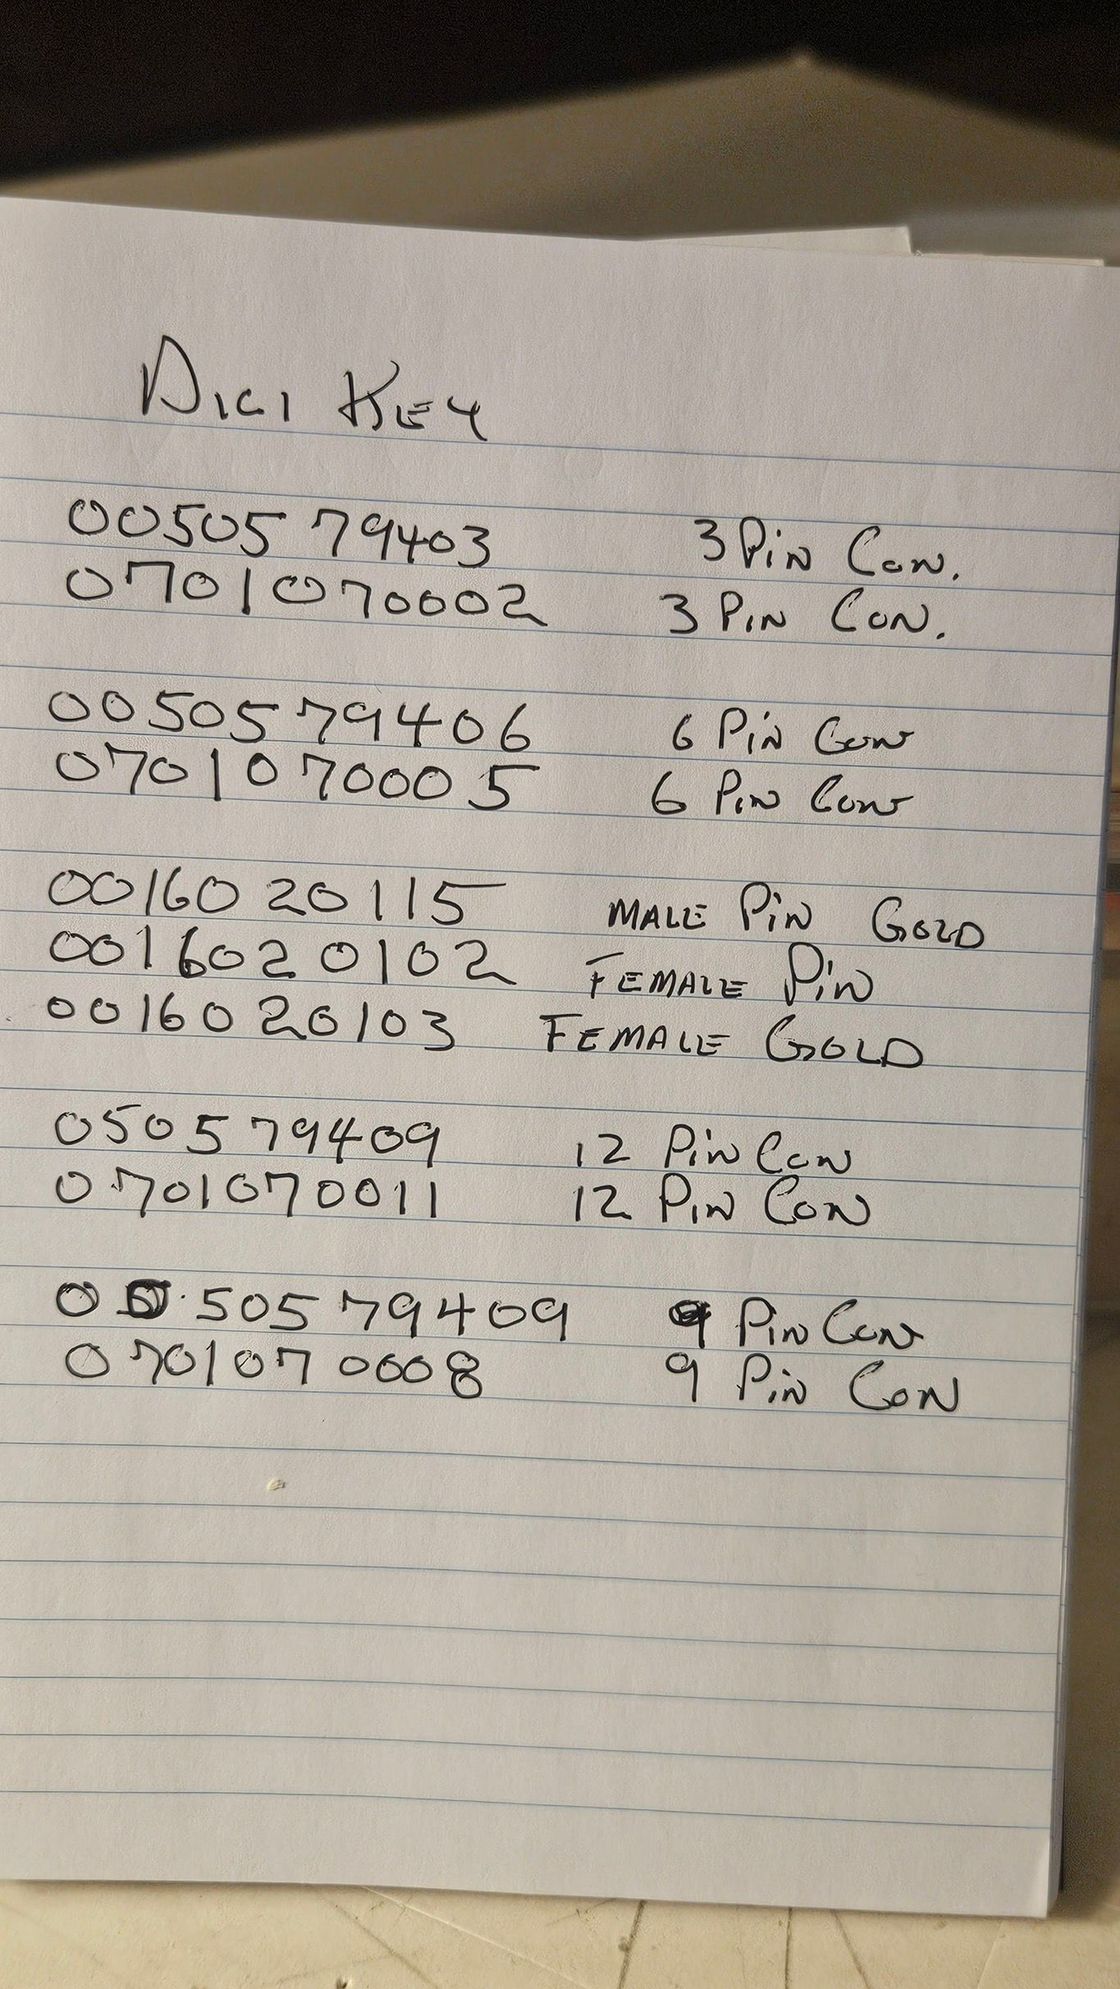 DIGI KEY
00505 79403 3 Pin Con.
0701070002 3 PIN CON.
0050579406 6 Pin Con
0701070005 6 Pin Con
00160 20115 MALE PIN GOLD
0016020102 FEMALE PIN
0016020103 FEMALE GOLD
050579409 12 Pin Con
0701070011 12 PIN CON
00505 79409 9 Pin Con
0701070008 9 Pin CON